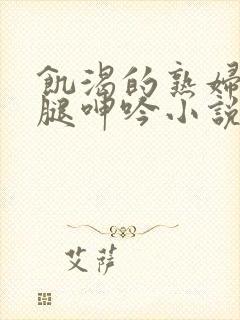 飢渴的熟婦
腿呻吟小說
艾薩